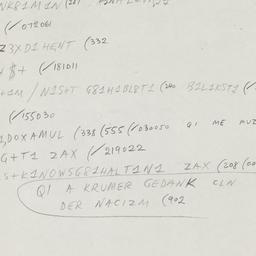 (✓072061
23XD1HENT (332
+$+ (✓181011
+1M / N1S+T G81H1DL8T1 (240 B1L1KST1 (✓
(✓155030
1,DOXAMUL (338 (555 (✓030050 Q1 ME MUZ
G+T1 ZAX (✓219022
S+K1NOWSG81HALT1N1 ZAX (208 (00
Q1 A KRUMER GEDANK CLN
DER NACIZM (902